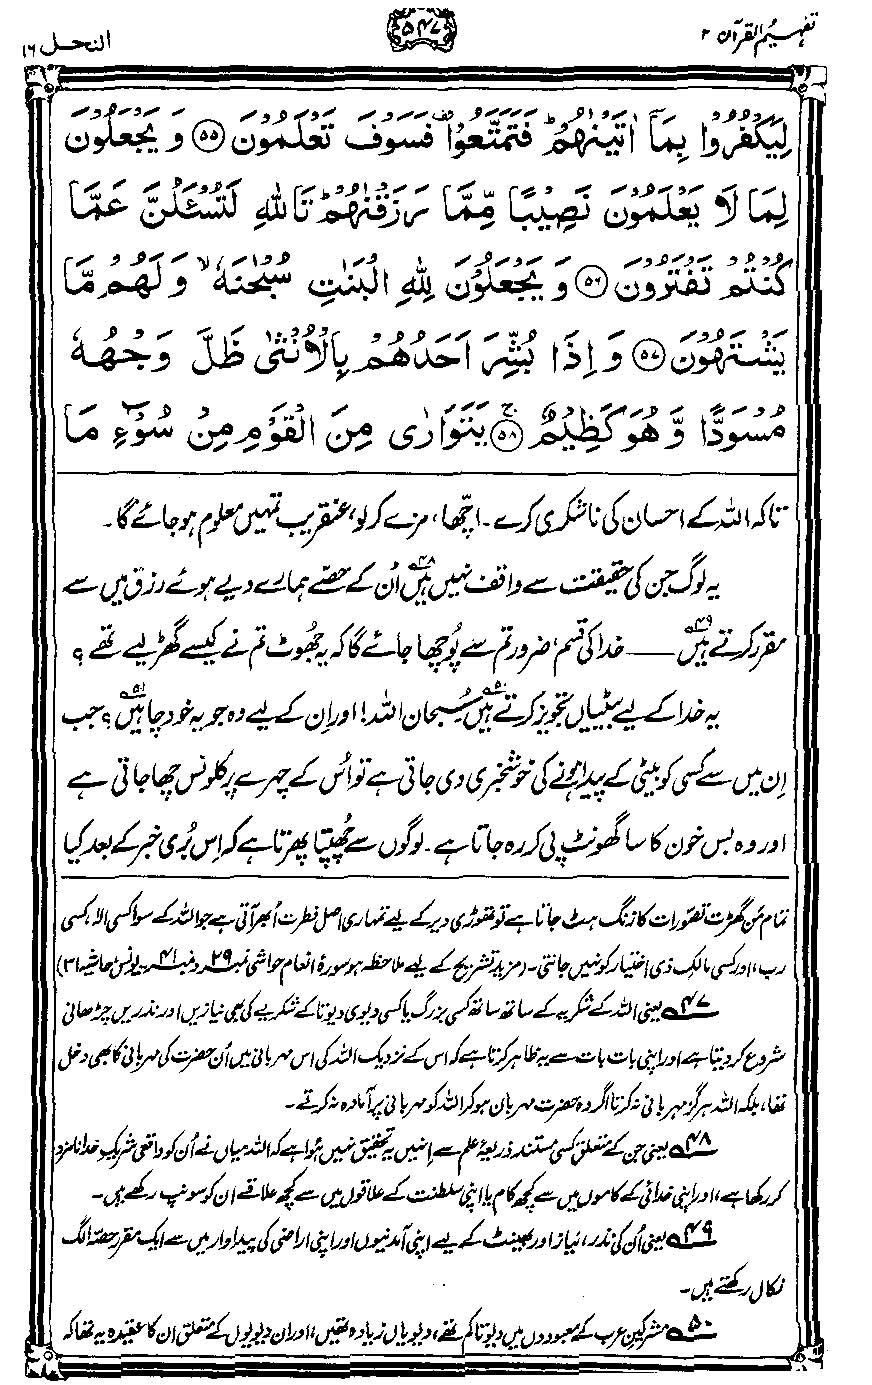 تفہیم القرآن ۲
۵۴۷
النحل ۱۶
لِيَكْفُرُوا بِمَآ اٰتَيْنٰهُمْ ؕ فَتَمَتَّعُوْا ۫ فَسَوْفَ تَعْلَمُوْنَ ﴿۵۵﴾ وَ يَجْعَلُوْنَ
لِمَا لَا يَعْلَمُوْنَ نَصِيْبًا مِّمَّا رَزَقْنٰهُمْ ؕ تَاللّٰهِ لَتُسْـَٔلُنَّ عَمَّا
كُنْتُمْ تَفْتَرُوْنَ ﴿۵۶﴾ وَ يَجْعَلُوْنَ لِلّٰهِ الْبَنٰتِ سُبْحٰنَهٗ ۙ وَ لَهُمْ مَّا
يَشْتَهُوْنَ ﴿۵۷﴾ وَ اِذَا بُشِّرَ اَحَدُهُمْ بِالْاُنْثٰى ظَلَّ وَجْهُهٗ
مُسْوَدًّا وَّ هُوَ كَظِيْمٌ ﴿۵۸﴾ ۚ يَتَوَارٰى مِنَ الْقَوْمِ مِنْ سُوْٓءِ مَا
تاکہ اللہ کے احسان کی ناشکری کرے۔ اچھا، مزے کرلو، عنقریب تمہیں معلوم ہو جائے گا۔
یہ لوگ جن کی حقیقت سے واقف نہیں ہیں۴۸ اُن کے حصے ہمارے دیے ہوئے رزق میں سے
مقرر کرتے ہیں۴۹ ــــ خدا کی قسم، ضرور تم سے پُوچھا جائے گا کہ یہ جھُوٹ تم نے کیسے گھڑ لیے تھے؟
یہ خدا کے لیے بیٹیاں تجویز کرتے ہیں۵۰ سُبحان اللہ! اور اِن کے لیے وہ جو یہ خود چاہیں۵۱؟ جب
اِن میں سے کسی کو بیٹی کے پیدا ہونے کی خوشخبری دی جاتی ہے تو اُس کے چہرے پر کلونس چھا جاتی ہے
اور وہ بس خون کا سا گھونٹ پی کر رہ جاتا ہے۔ لوگوں سے چھُپتا پھرتا ہے کہ اِس بُری خبر کے بعد کیا
تمام من گھڑت تصورات کا زنگ ہٹ جاتا ہے تو تھوڑی دیر کے لیے تمہاری اصل فطرت اُبھر آتی ہے جو اللہ کے سوا کسی الٰہ، کسی
رب، اور کسی مالکِ ذی اختیار کو نہیں جانتی۔ (مزید تشریح کے لیے ملاحظہ ہو سورۂ انعام حواشی نمبر ۲۹ و نمبر ۴۱۔ یونس حاشیہ ۳۱)
۴۷ یعنی اللہ کے شکریہ کے ساتھ ساتھ کسی بزرگ یا کسی دیوی دیوتا کے شکریے کی بھی نیازیں اور نذریں چڑھانی
شروع کر دیتا ہے اور اپنی بات بات سے یہ ظاہر کرتا ہے کہ اس کے نزدیک اللہ کی اس مہربانی میں اُن حضرت کی مہربانی کا بھی دخل
تھا، بلکہ اللہ ہرگز مہربانی نہ کرتا اگر وہ حضرت مہربان ہو کر اللہ کو مہربانی پر آمادہ نہ کرتے۔
۴۸ یعنی جن کے متعلق کسی مستند ذریعۂ علم سے اِنہیں یہ تحقیق نہیں ہُوا ہے کہ اللہ میاں نے اُن کو واقعی شریکِ خدا نامزد
کر رکھا ہے، اور اپنی خدائی کے کاموں میں سے کچھ کام یا اپنی سلطنت کے علاقوں میں سے کچھ علاقے ان کو سونپ رکھے ہیں۔
۴۹ یعنی اُن کی نذر، نیاز اور بھینٹ کے لیے اپنی آمدنیوں اور اپنی اراضی کی پیداوار میں سے ایک مقرر حصہ الگ
نکال رکھتے ہیں۔
۵۰ مشرکین عرب کے معبودوں میں دیوتا کم تھے، دیویاں زیادہ تھیں، اور ان دیویوں کے متعلق ان کا عقیدہ یہ تھا کہ